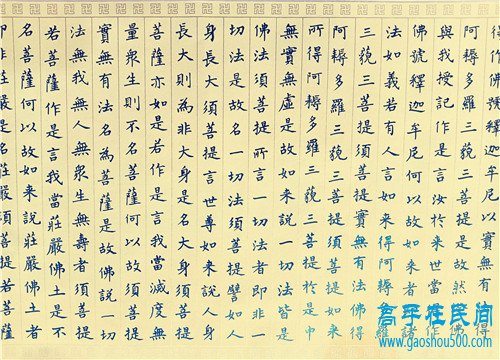 得作佛號釋迦牟尼以實無有法得
阿耨多羅三藐三菩提是故然燈佛
與我授記作是言汝於來世當得作
佛號釋迦牟尼何以故如來者即諸
法如義若有人言如來得阿耨多羅
三藐三菩提須菩提實無有法佛得
阿耨多羅三藐三菩提須菩提如來
所得阿耨多羅三藐三菩提於是中
無實無虛是故如來說一切法皆是
佛法須菩提所言一切法者即非一
切法是故名一切法須菩提譬如人
身長大須菩提言世尊如來說人身
長大則為非大身是名大身須菩提
菩薩亦如是若作是言我當滅度無
量眾生則不名菩薩何以故須菩提
實無有法名為菩薩是故佛說一切
法無我無人無眾生無壽者須菩提
若菩薩作是言我當莊嚴佛土是不
名菩薩何以故如來說莊嚴佛土者
即非莊嚴是名莊嚴須菩提若菩薩
高手在民间
www.gaoshou500.com